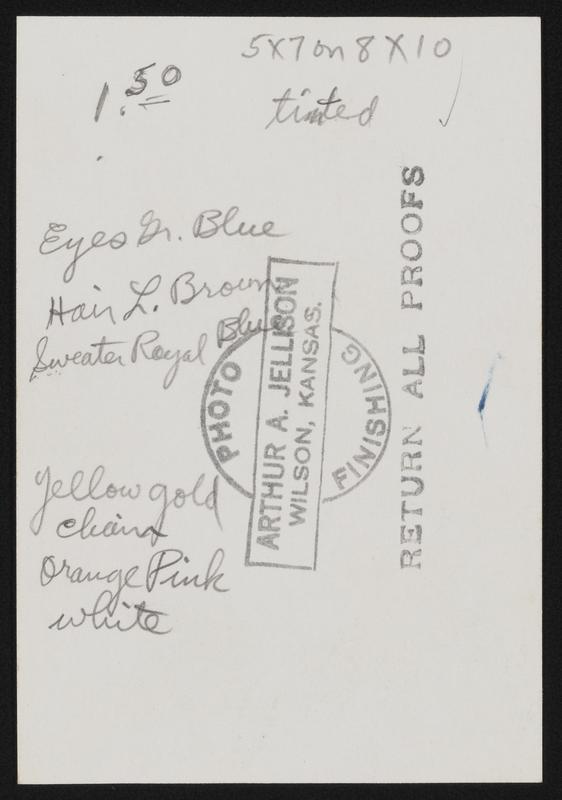 5x7 on 8 X 10
1.50
tinted
Eyes Gr. Blue
Hair L. Brown
Sweater Royal Blue
yellow gold
chain
Orange Pink
white
PHOTO FINISHING
ARTHUR A. JELLISON
WILSON, KANSAS.
RETURN ALL PROOFS